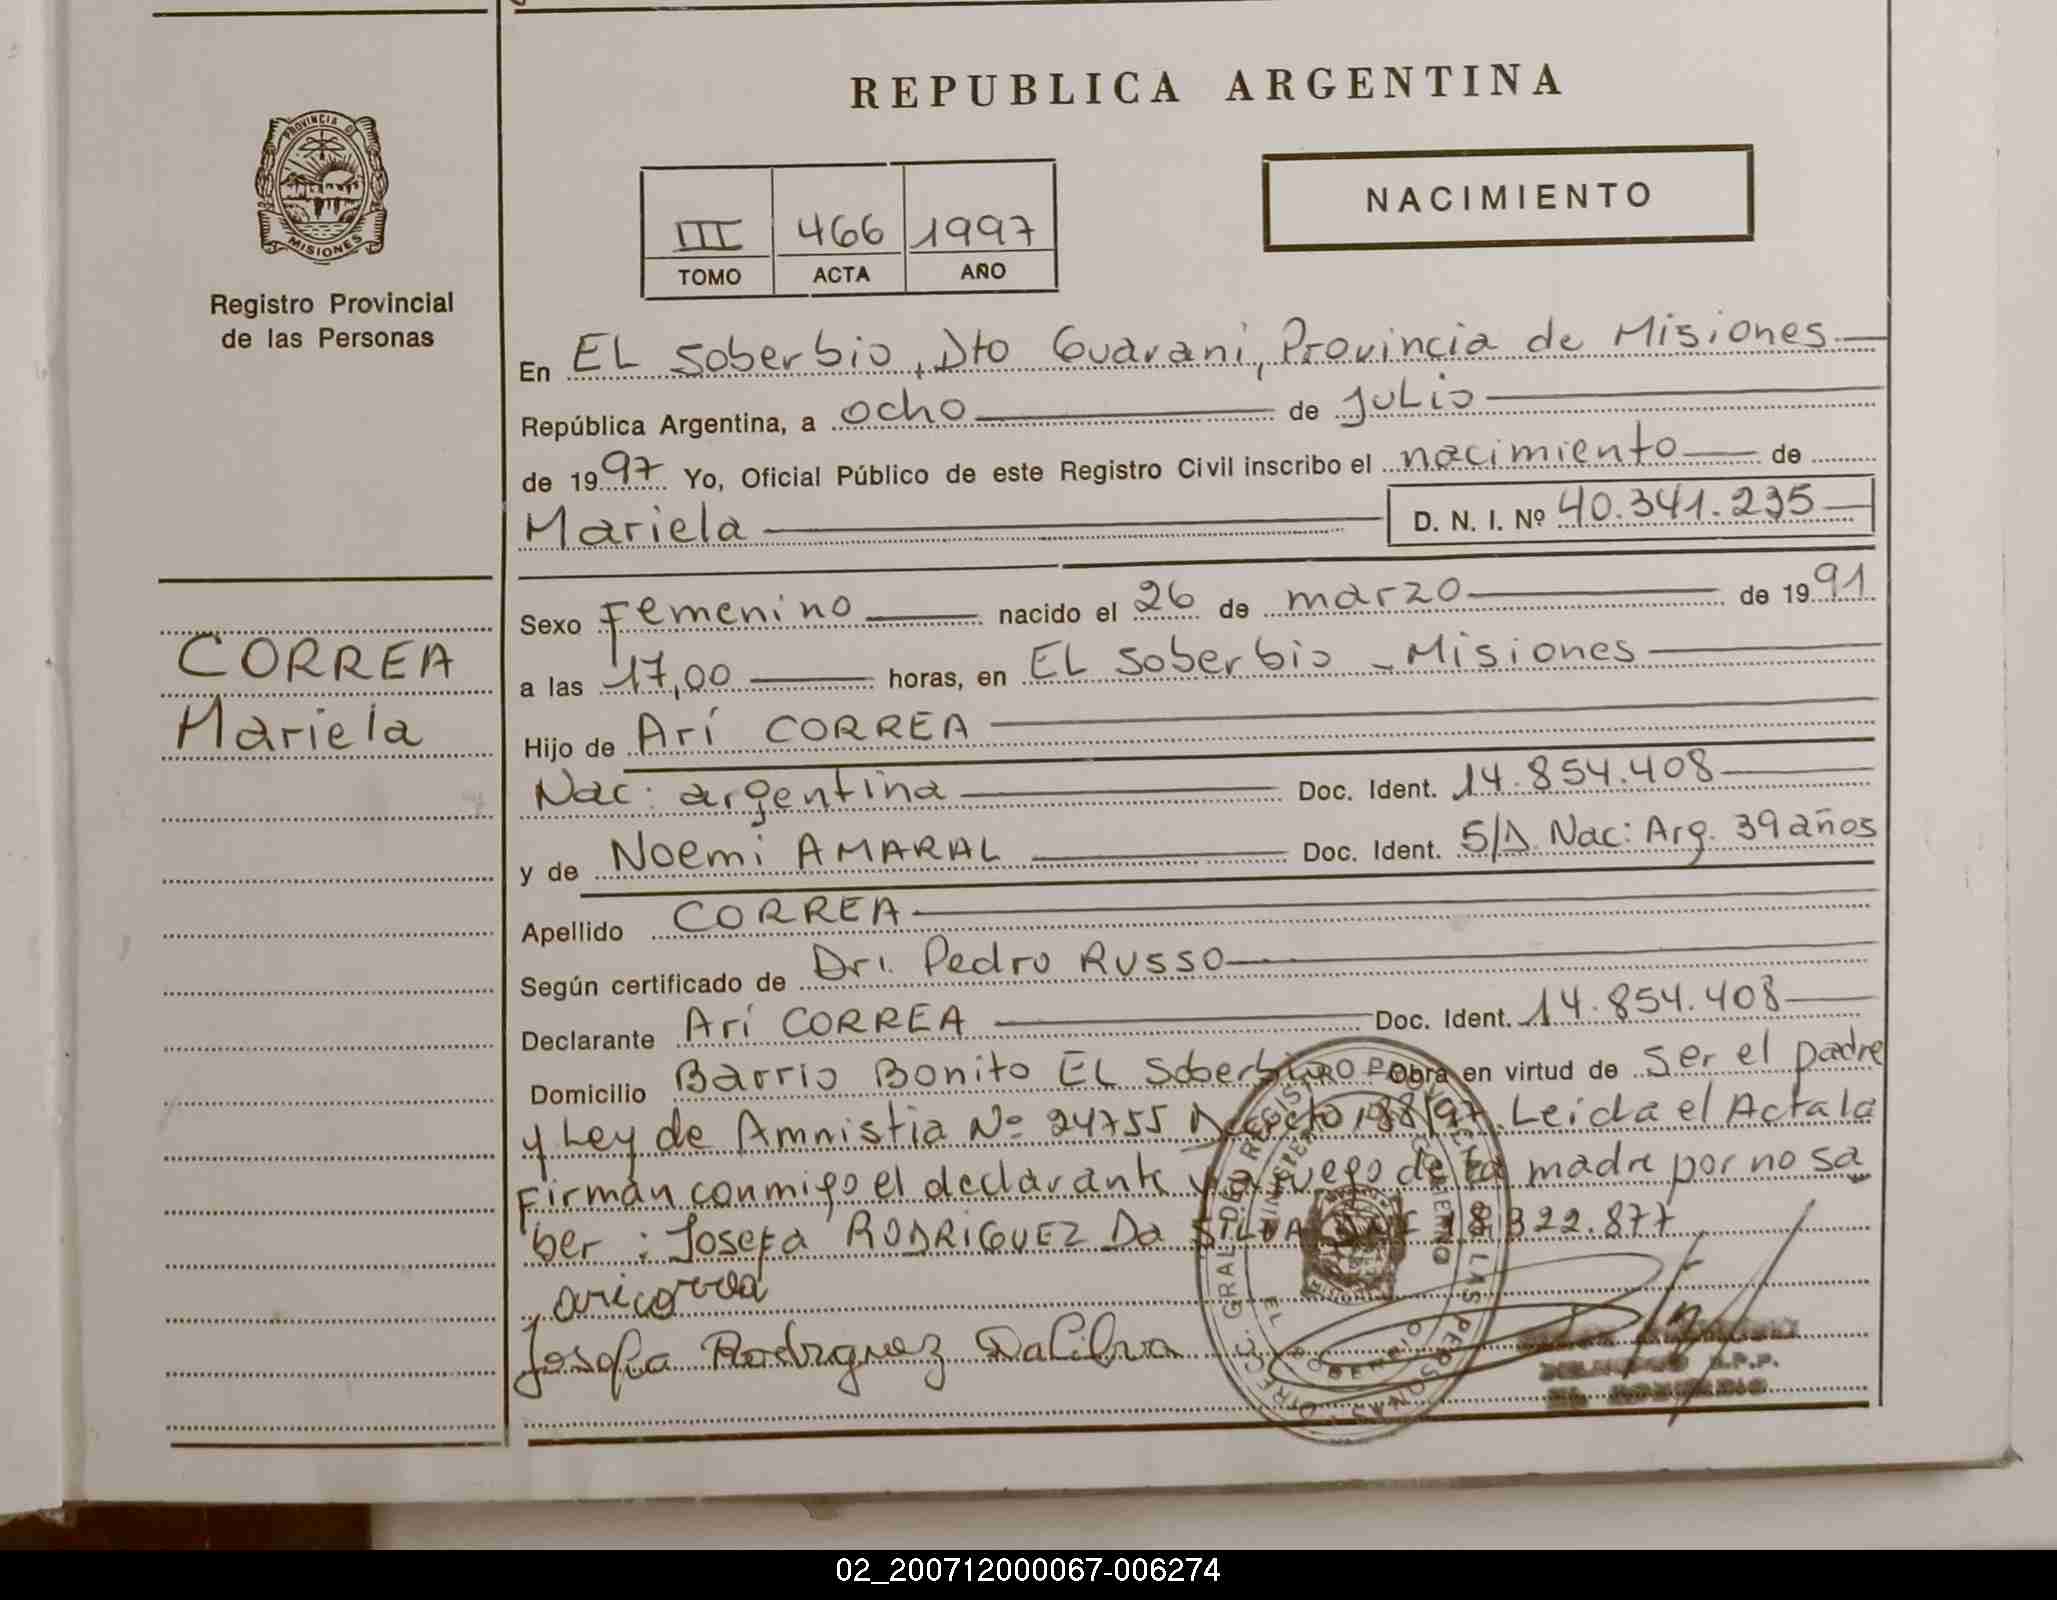 REPUBLICA ARGENTINA
PROVINCIA D
MISIONES
Registro Provincial
de las Personas
NACIMIENTO
III 466 1997
TOMO ACTA AÑO
En EL Soberbio, Dto Guaraní, Provincia de Misiones
República Argentina, a ocho de Julio
de 1997 Yo, Oficial Público de este Registro Civil inscribo el nacimiento de
Mariela D. N. I. Nº 40.341.235
Sexo Femenino nacido el 26 de marzo de 1991
a las 17,00 horas, en EL Soberbio - Misiones
CORREA
Mariela
Hijo de Arí CORREA
Nac: argentina Doc. Ident. 14.854.408
y de Noemi AMARAL Doc. Ident. S/D. Nac: Arg. 39 años
Apellido CORREA
Según certificado de Dr. Pedro RUSSO
Declarante Arí CORREA Doc. Ident. 14.854.408
Domicilio Barrio Bonito EL Soberbio Obra en virtud de Ser el padre
y Ley de Amnistia Nº 24755 Decreto 188/97. Leida el Acta la
Firman conmigo el declarante y a ruego de la madre por no sa
ber : Josefa RODRIGUEZ Da SILVA DNI 18.322.877
ari correa
Josefa Rodriguez DaCilva
02_200712000067-006274